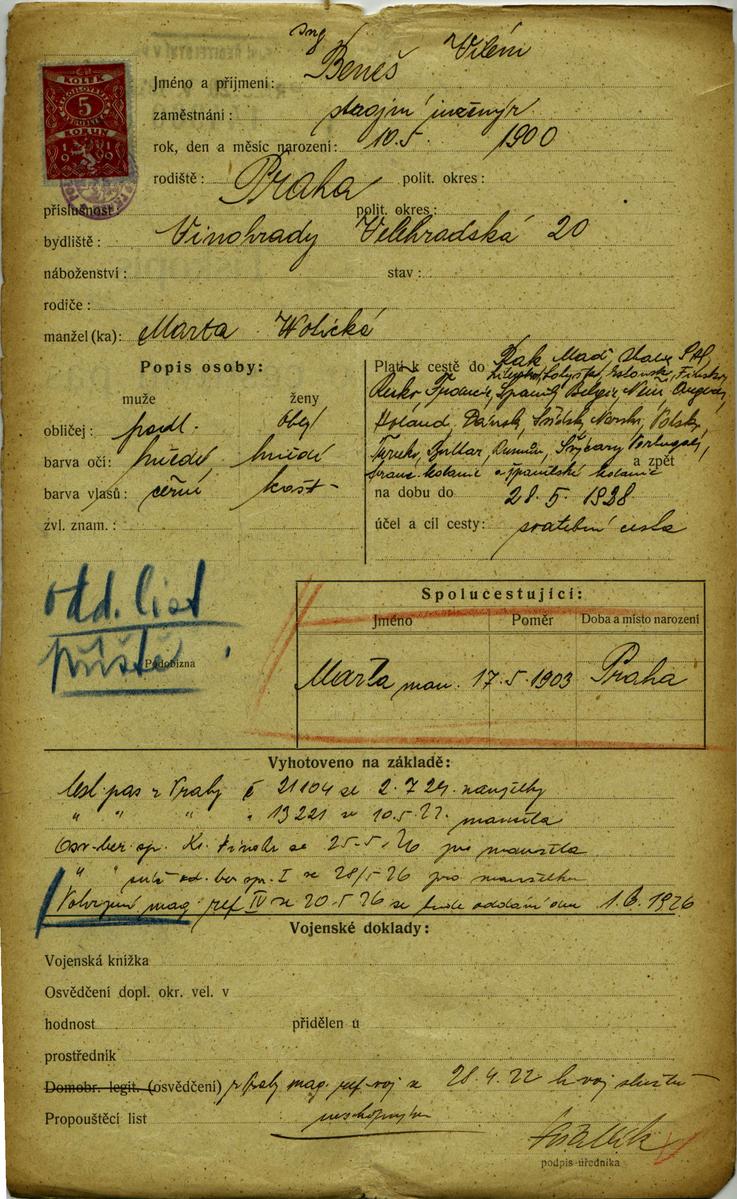 Ing
Beneš Vilém
Jméno a přijmení:
KOLEK
5
KORUN
1919
zaměstnání: stavjní inženýr
rok, den a měsíc narození: 10.5. 1900
rodiště: Praha polit. okres:
příslušnost polit. okres:
bydliště: Vinohrady Velehradská 20
náboženství: stav:
rodiče:
manžel (ka): Marta Wolická
Popis osoby:
muže ženy
obličej: podl. obl
barva očí: hnědé hnědé
barva vlasů: černé kašt-
zvl. znam.:
Platí k cestě do Rak Maď, Italie
Řecko Francie, Španěly Belgie, Něm,
Holand, Dánsk, Švédsk, Norsko, Polsko
Turecko, Bulhar, Rumun, Švýcary Portugal,
franc. kolonie a španělské kolonie a zpět
na dobu do 28.5.1928
účel a cíl cesty: svatební cesta
odd. list
příště
Podobizna
Spolucestující:
Jméno Poměr Doba a místo narození
Marta man. 17.5.1903 Praha
Vyhotoveno na základě:
čsl. pas z Prahy č 21104 ze 2.7.24. manželky
" " " " 13221 ze 10.5.22. manžela
Osv. ber. sp. ze 25.5.26 pro manžela
" " ber sp. I ze 28/5 26 pro manželku
Potvrzení mag. ref IV ze 20.5 26 že bude oddán dne 1.6.1926
Vojenské doklady:
Vojenská knížka
Osvědčení dopl. okr. vel. v
hodnost přidělen u
prostředník
Domobr. legit. (osvědčení) z Prahy mag. ref. voj z 28.4.22 k voj službě
Propouštěcí list neschopným
podpis úředníka